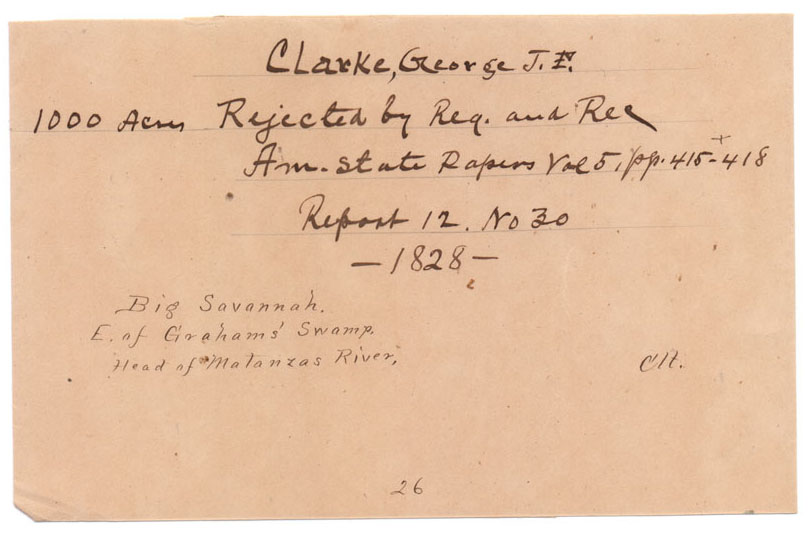 Clarke, George J. F.
1000 Acres Rejected by Reg. and Rec
Am. State Papers Vol 5, pp. 415-418
Report 12. No 30
—1828—
Big Savannah.
E. of Grahams' Swamp.
Head of Matanzas River.
26